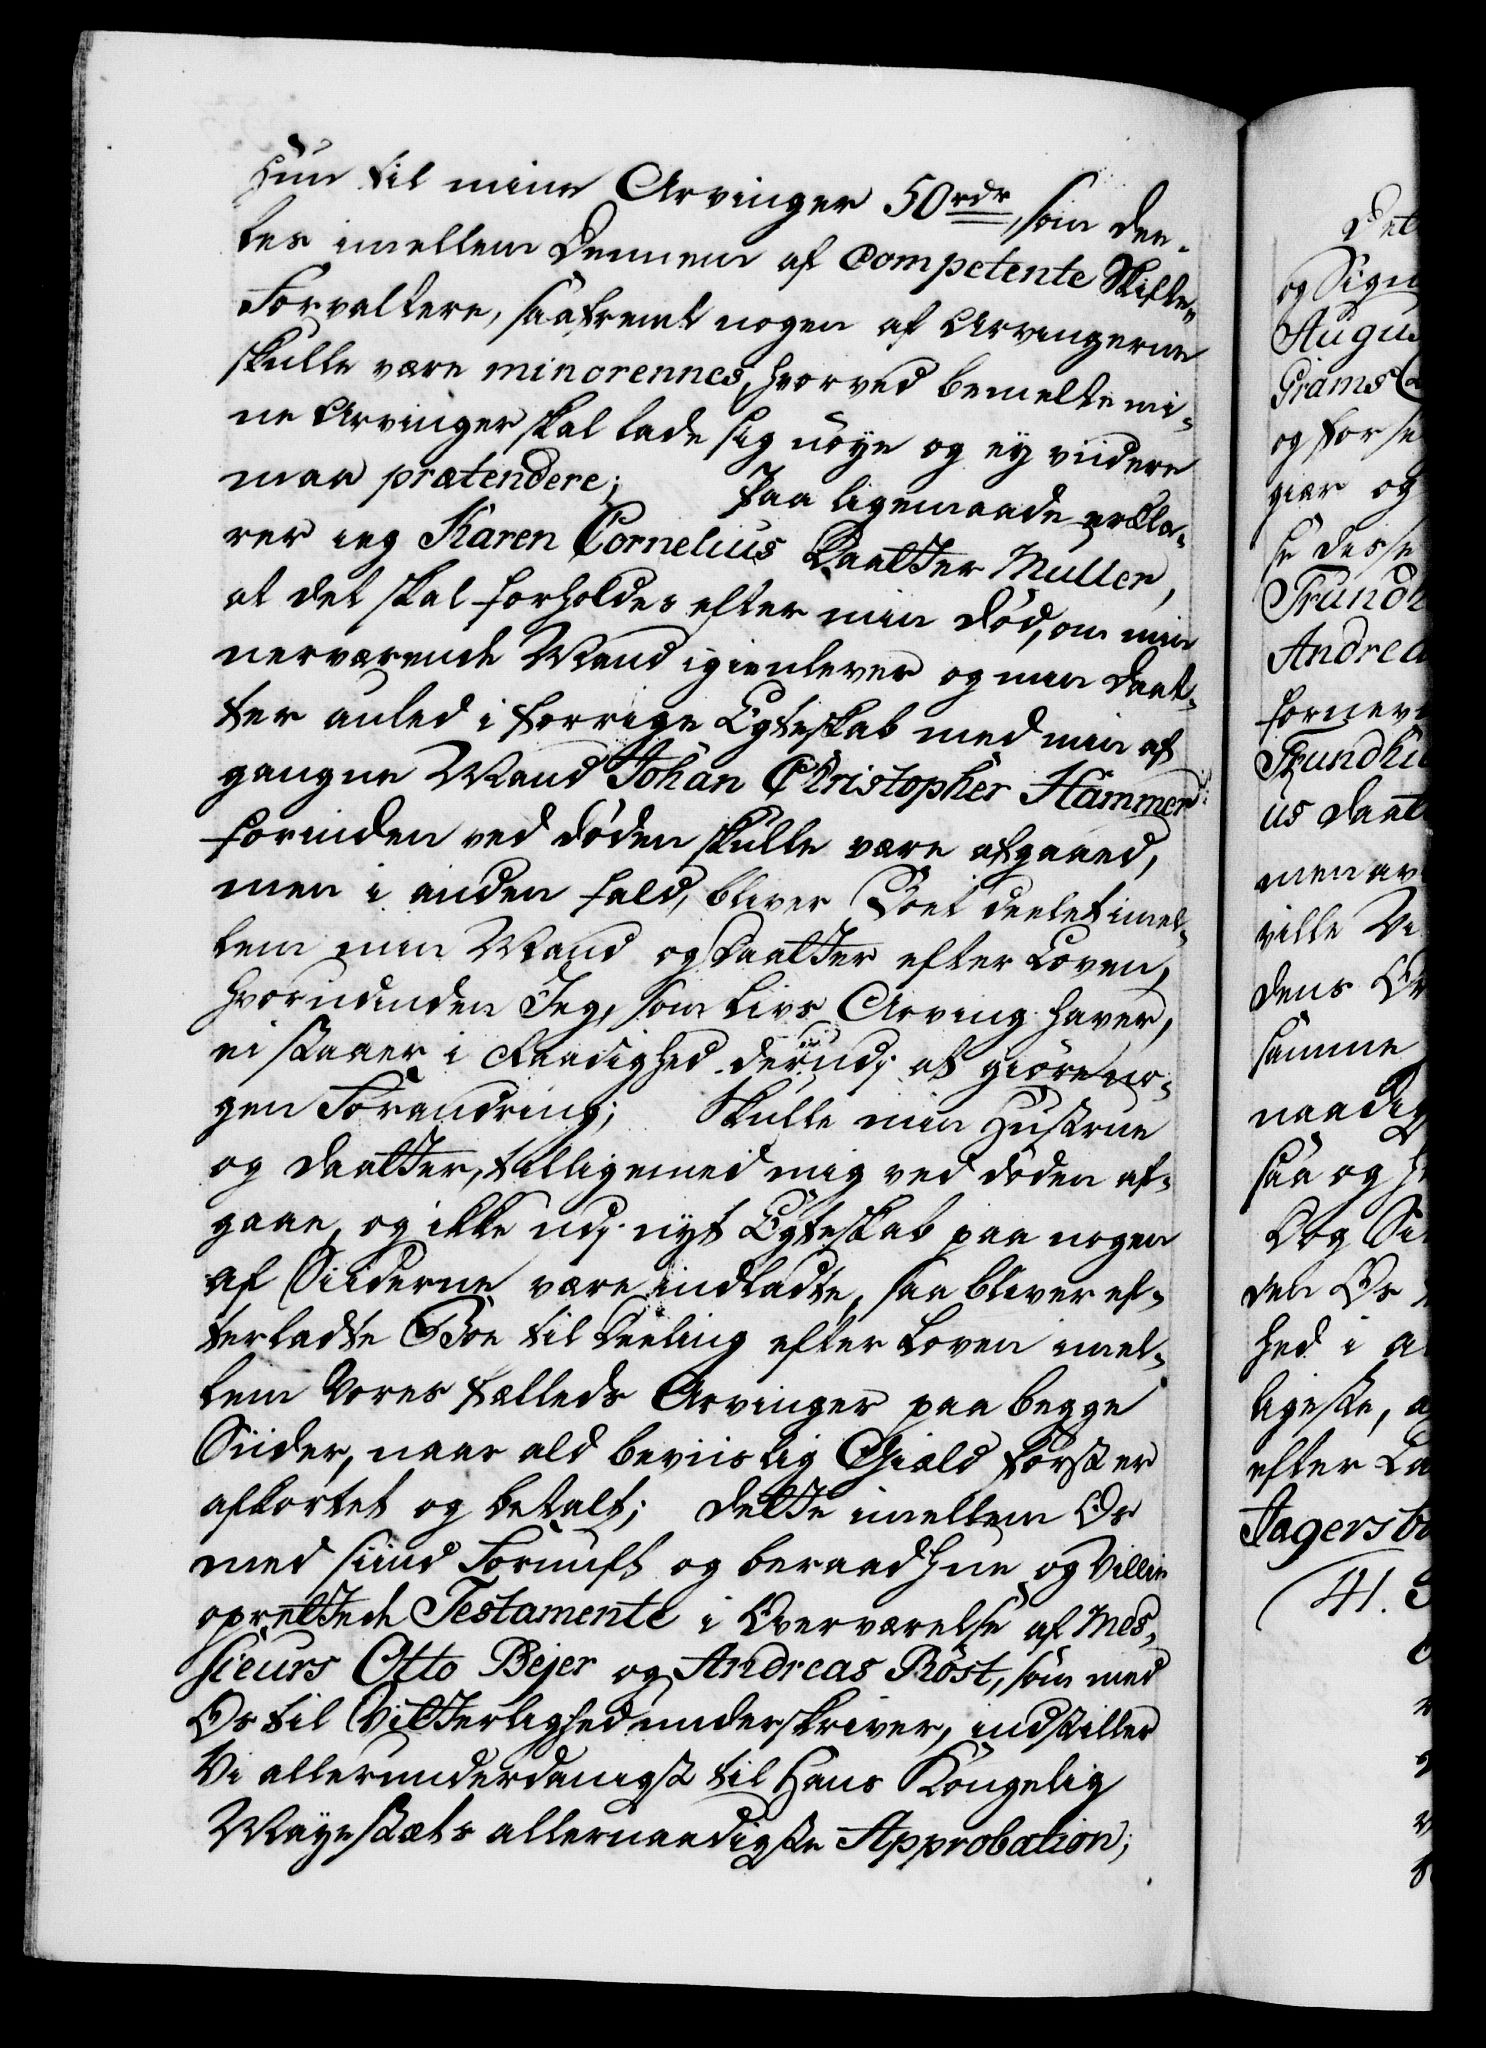 hun til mine Arvinger 50 rdr, som dee-
les imellem Dennem af Competente Skifte-
Forvaltere, saafremt nogen af Arvingerne
skulle være minorennes, hvorved bemelte mi-
ne Arvinger skal lade sig nöye og ey viidere
maa prætendere; Paa ligemaade erklæ-
rer ieg Karen Cornelius Daatter Muller,
at det skal forholdes efter min Död, om min
nerværende Mand igienlever og min Daat-
ter aulet i forrige Egteskab med min af
gangne Mand Johan Christopher Hammer
forinden ved Döden skulle være afgaaed,
men i anden fald, bliver Boet deelet imel-
lem min Mand og Daatter efter Loven,
hvorudinden Jeg, som Livs Arving haver,
ei staaer i Raadighed derudj at giöre no-
gen Forandring; Skulle min Hustrue
og Daatter, tilligemed mig ved Döden af-
gaae, og ikke udj nyt Egteskab paa nogen
af Siiderne være indladte, saa bliver ef-
terladte Boe til Deeling efter Loven imel-
lem Vores fælleds Arvinger paa begge
Siider, naar ald beviislig Giæld först er
afkortet og betalt; Dette imellem Os
med sund Fornuft og beraad Hue og Villie
oprettede Testamente i Overværelse af Mes-
sieurs Otto Bejer og Andreas Röst, som med
Os til Vitterlighed underskriver, indstiller
Vi allerunderdanigst til Hans Kongelig
Mayestæts allernaadigste Approbation;
Det
og Sign
Augu
Grams
og for
giör og
se disse
Trund
Andrea
fornev
Trundhi
us Daat
men av
ville Vi
dens
samme
naadig
saa og
Dog
den
hed i a
ligeste, a
efter La
Jagersb
41.